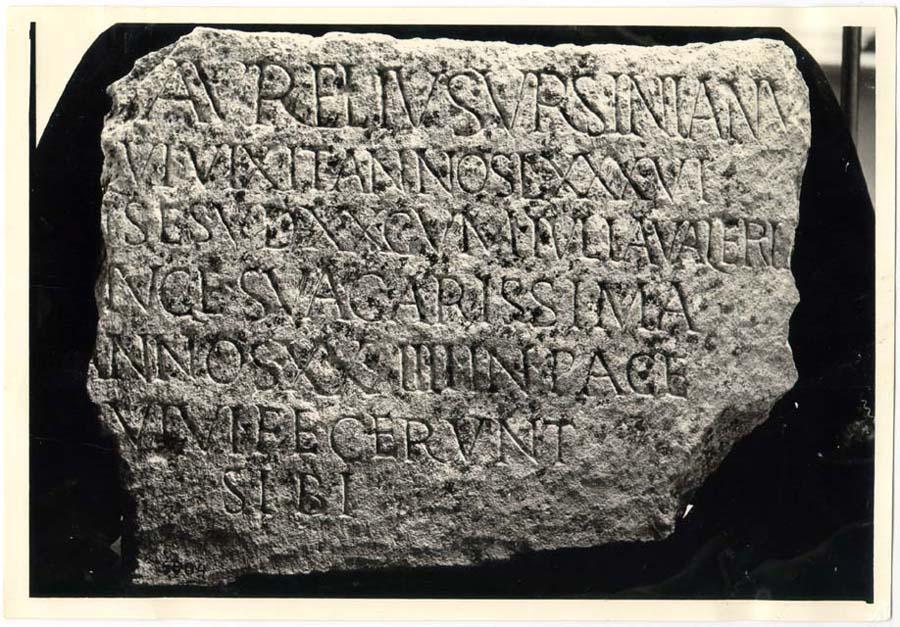 AVRELIVSVRSINIANV
VIVIXITANNOSLXXXVI
ISESVDXXCVMIVLLAVALERI
NGESVAGARISSIMA
ANNOSXXIIIIINPACE
VIVIFECERVNT
SIBI